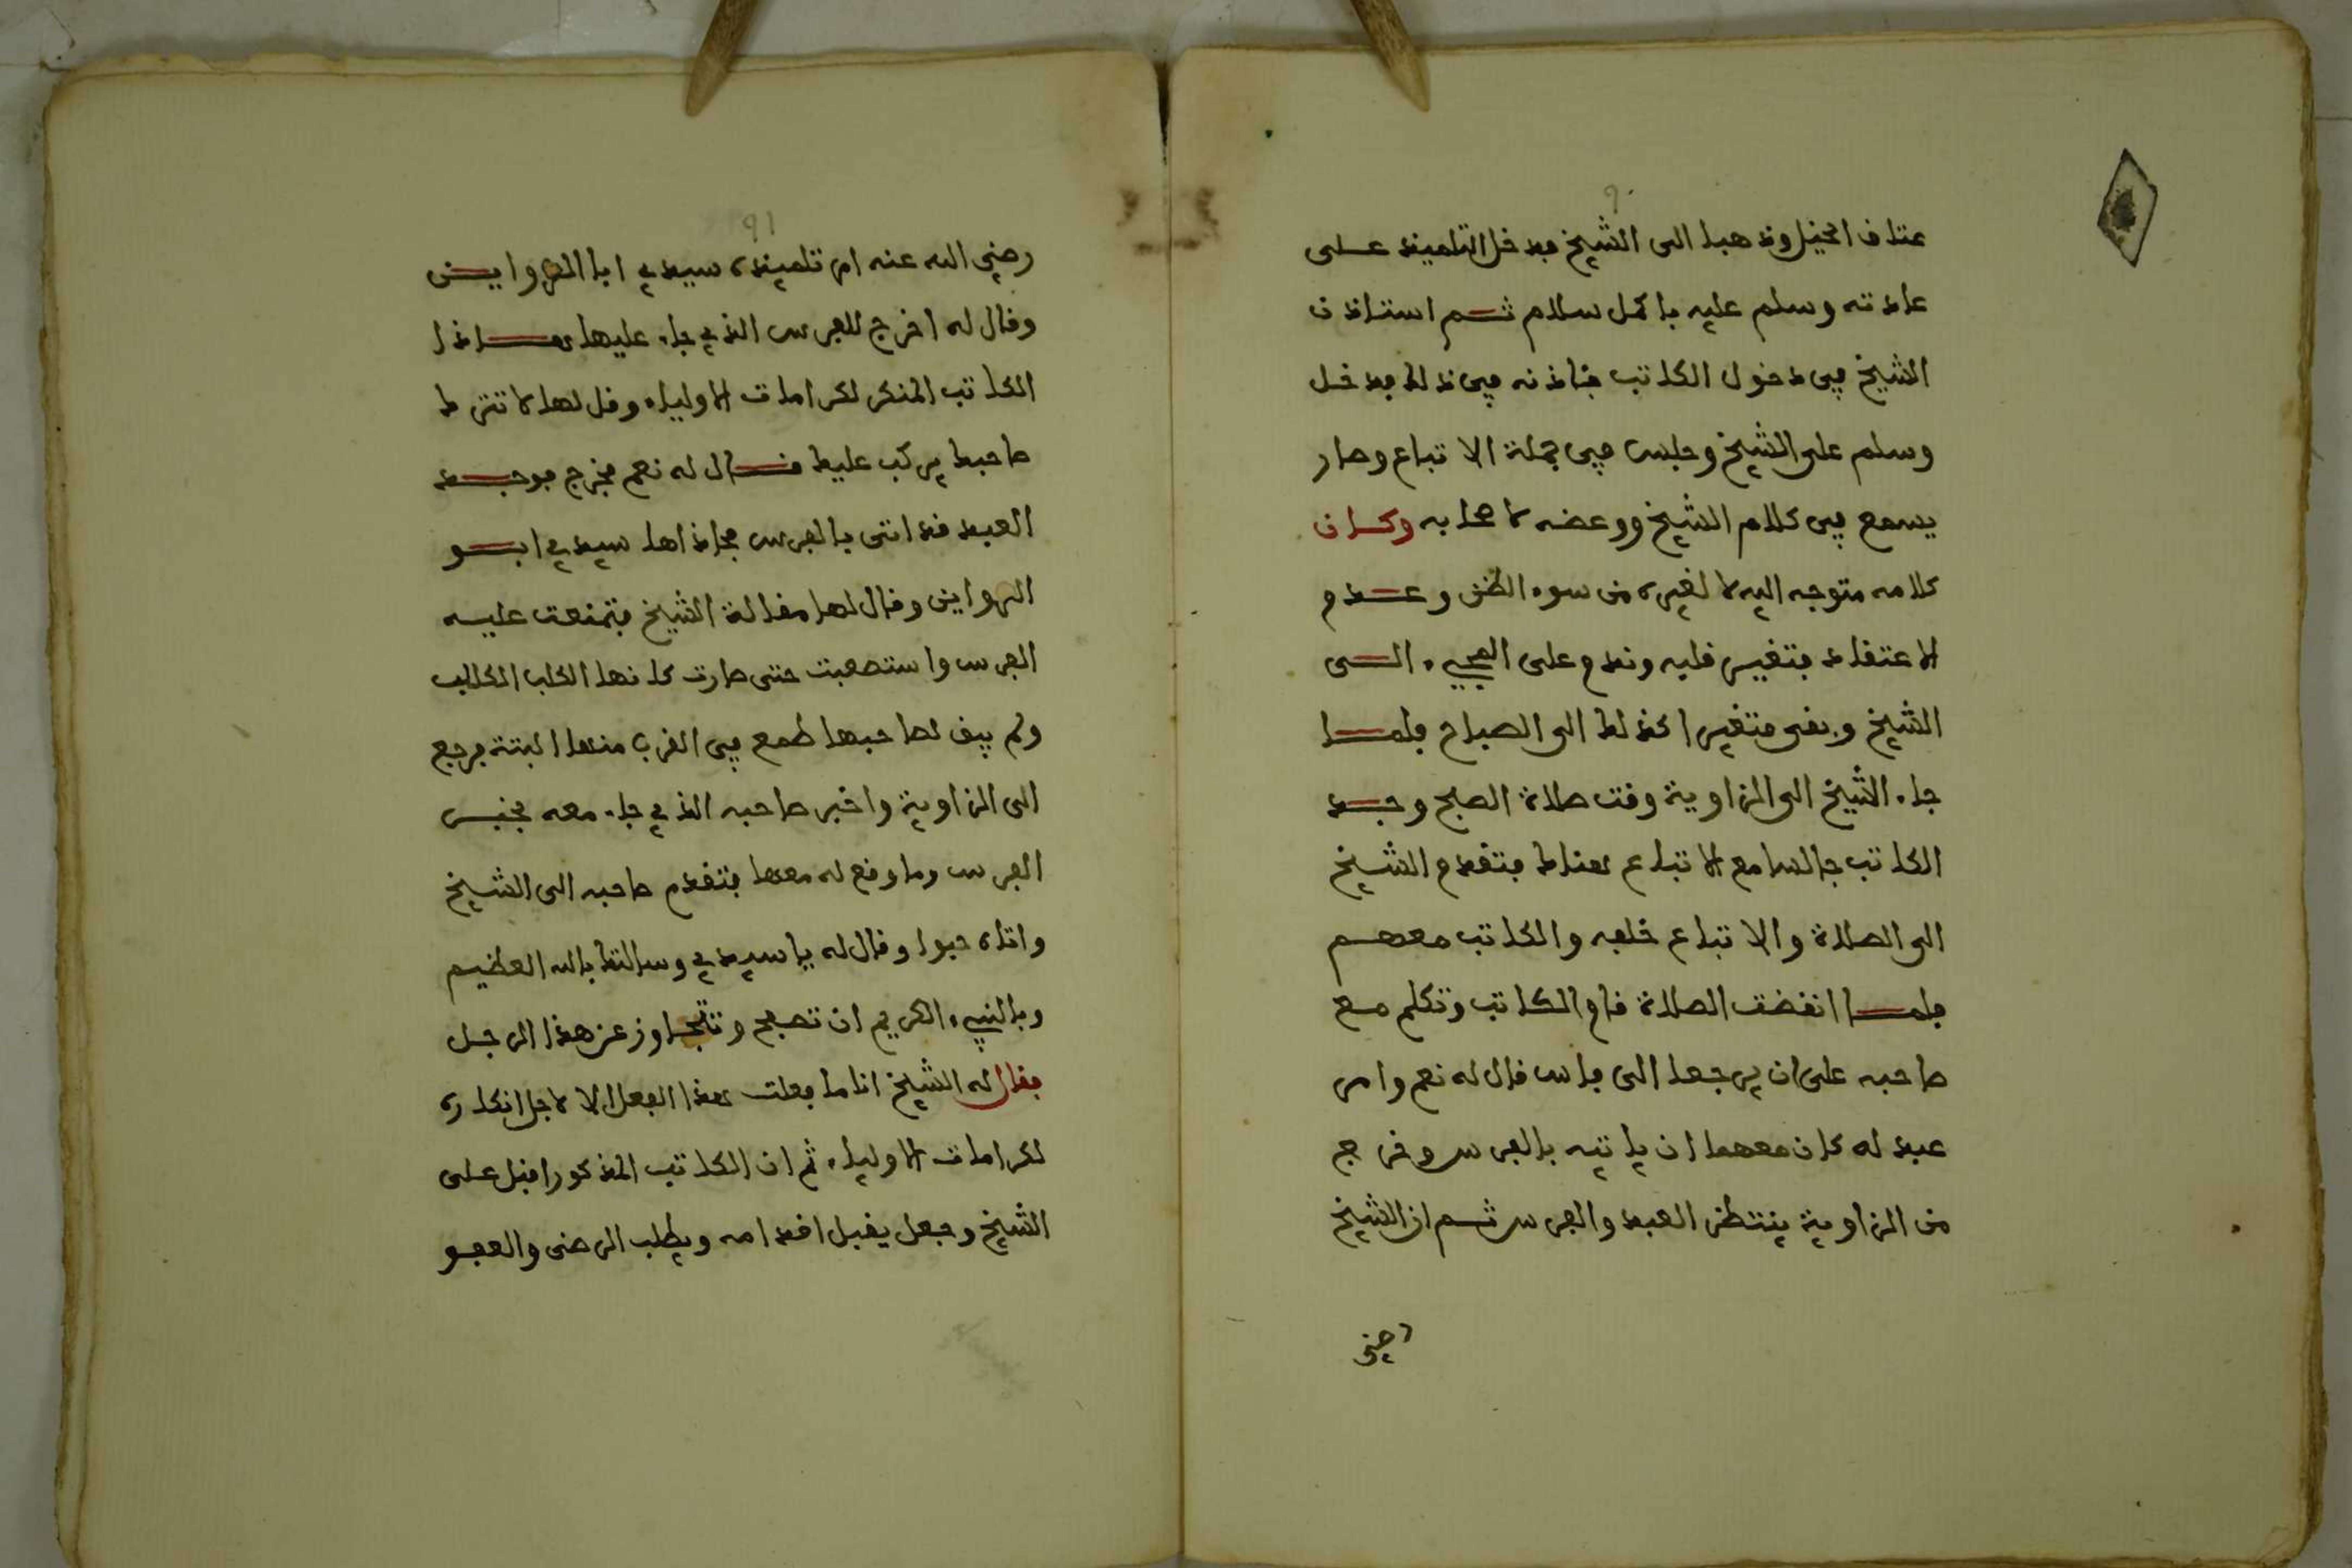 ٩٠
عتاف الخيل وذهبا الى الشيخ فدخل التلميذ على
عادته وسلم عليه باكمل سلام ثم استاذن
الشيخ في دخول الكاتب فاذنه في ذلك فدخل
وسلم على الشيخ وجلس في جملة الاتباع وصار
يسمع في كلام الشيخ ووعضه لاصحابه وكان
كلامه متوجه اليه لا لغيره من سوء الظن وعدم
الاعتقاد فتغير قلبه وندم على المجيء الى
الشيخ وبقى متغيرا كذلك الى الصباح فلما
جاء الشيخ الى الزاوية وقت صلاة الصبح وجد
الكاتب جالسا مع الاتباع هناك فتقدم الشيخ
الى الصلاة والاتباع خلفه والكاتب معهم
فلما انقضت الصلاة قام الكاتب وتكلم مع
صاحبه على ان يرجعا الى فاس قال له نعم وامر
عبد له كان معهما ان ياتيه بالفرس وخرج
من الزاوية ينتظر العبد والفرس ثم ان الشيخ
رضي
٩١
رضي الله عنه امر تلميذه سيدي ابا الهواين
وقال له اخرج للفرس الذي جاء عليها هاذا
الكاتب المنكر لكرامات الاولياء وقل لها لا تترك
صاحبك يركب عليك فقال له نعم فخرج فوجد
العبد قد اتى بالفرس فحاذاها سيدي ابو
الهواين وقال لها مقالة الشيخ فتمنعت عليه
الفرس واستصعبت حتى صارت كانها الكلب الكالب
ولم يبق لصاحبها طمع في القرب منها البتة فرجع
الى الزاوية واخبر صاحبه الذي جاء معه بخبر
الفرس وما وقع له معها فتقدم صاحبه الى الشيخ
واتاه حبوا وقال له يا سيدي وسالتك بالله العظيم
وبالنبيء الكريم ان تصفح وتتجاوز عن هذا الرجل
فقال له الشيخ انا ما فعلت هذا الفعل الا لاجل انكاره
لكرامات الاولياء ثم ان الكاتب المذكور اقبل على
الشيخ وجعل يقبل اقدامه ويطلب الرضى والعفو